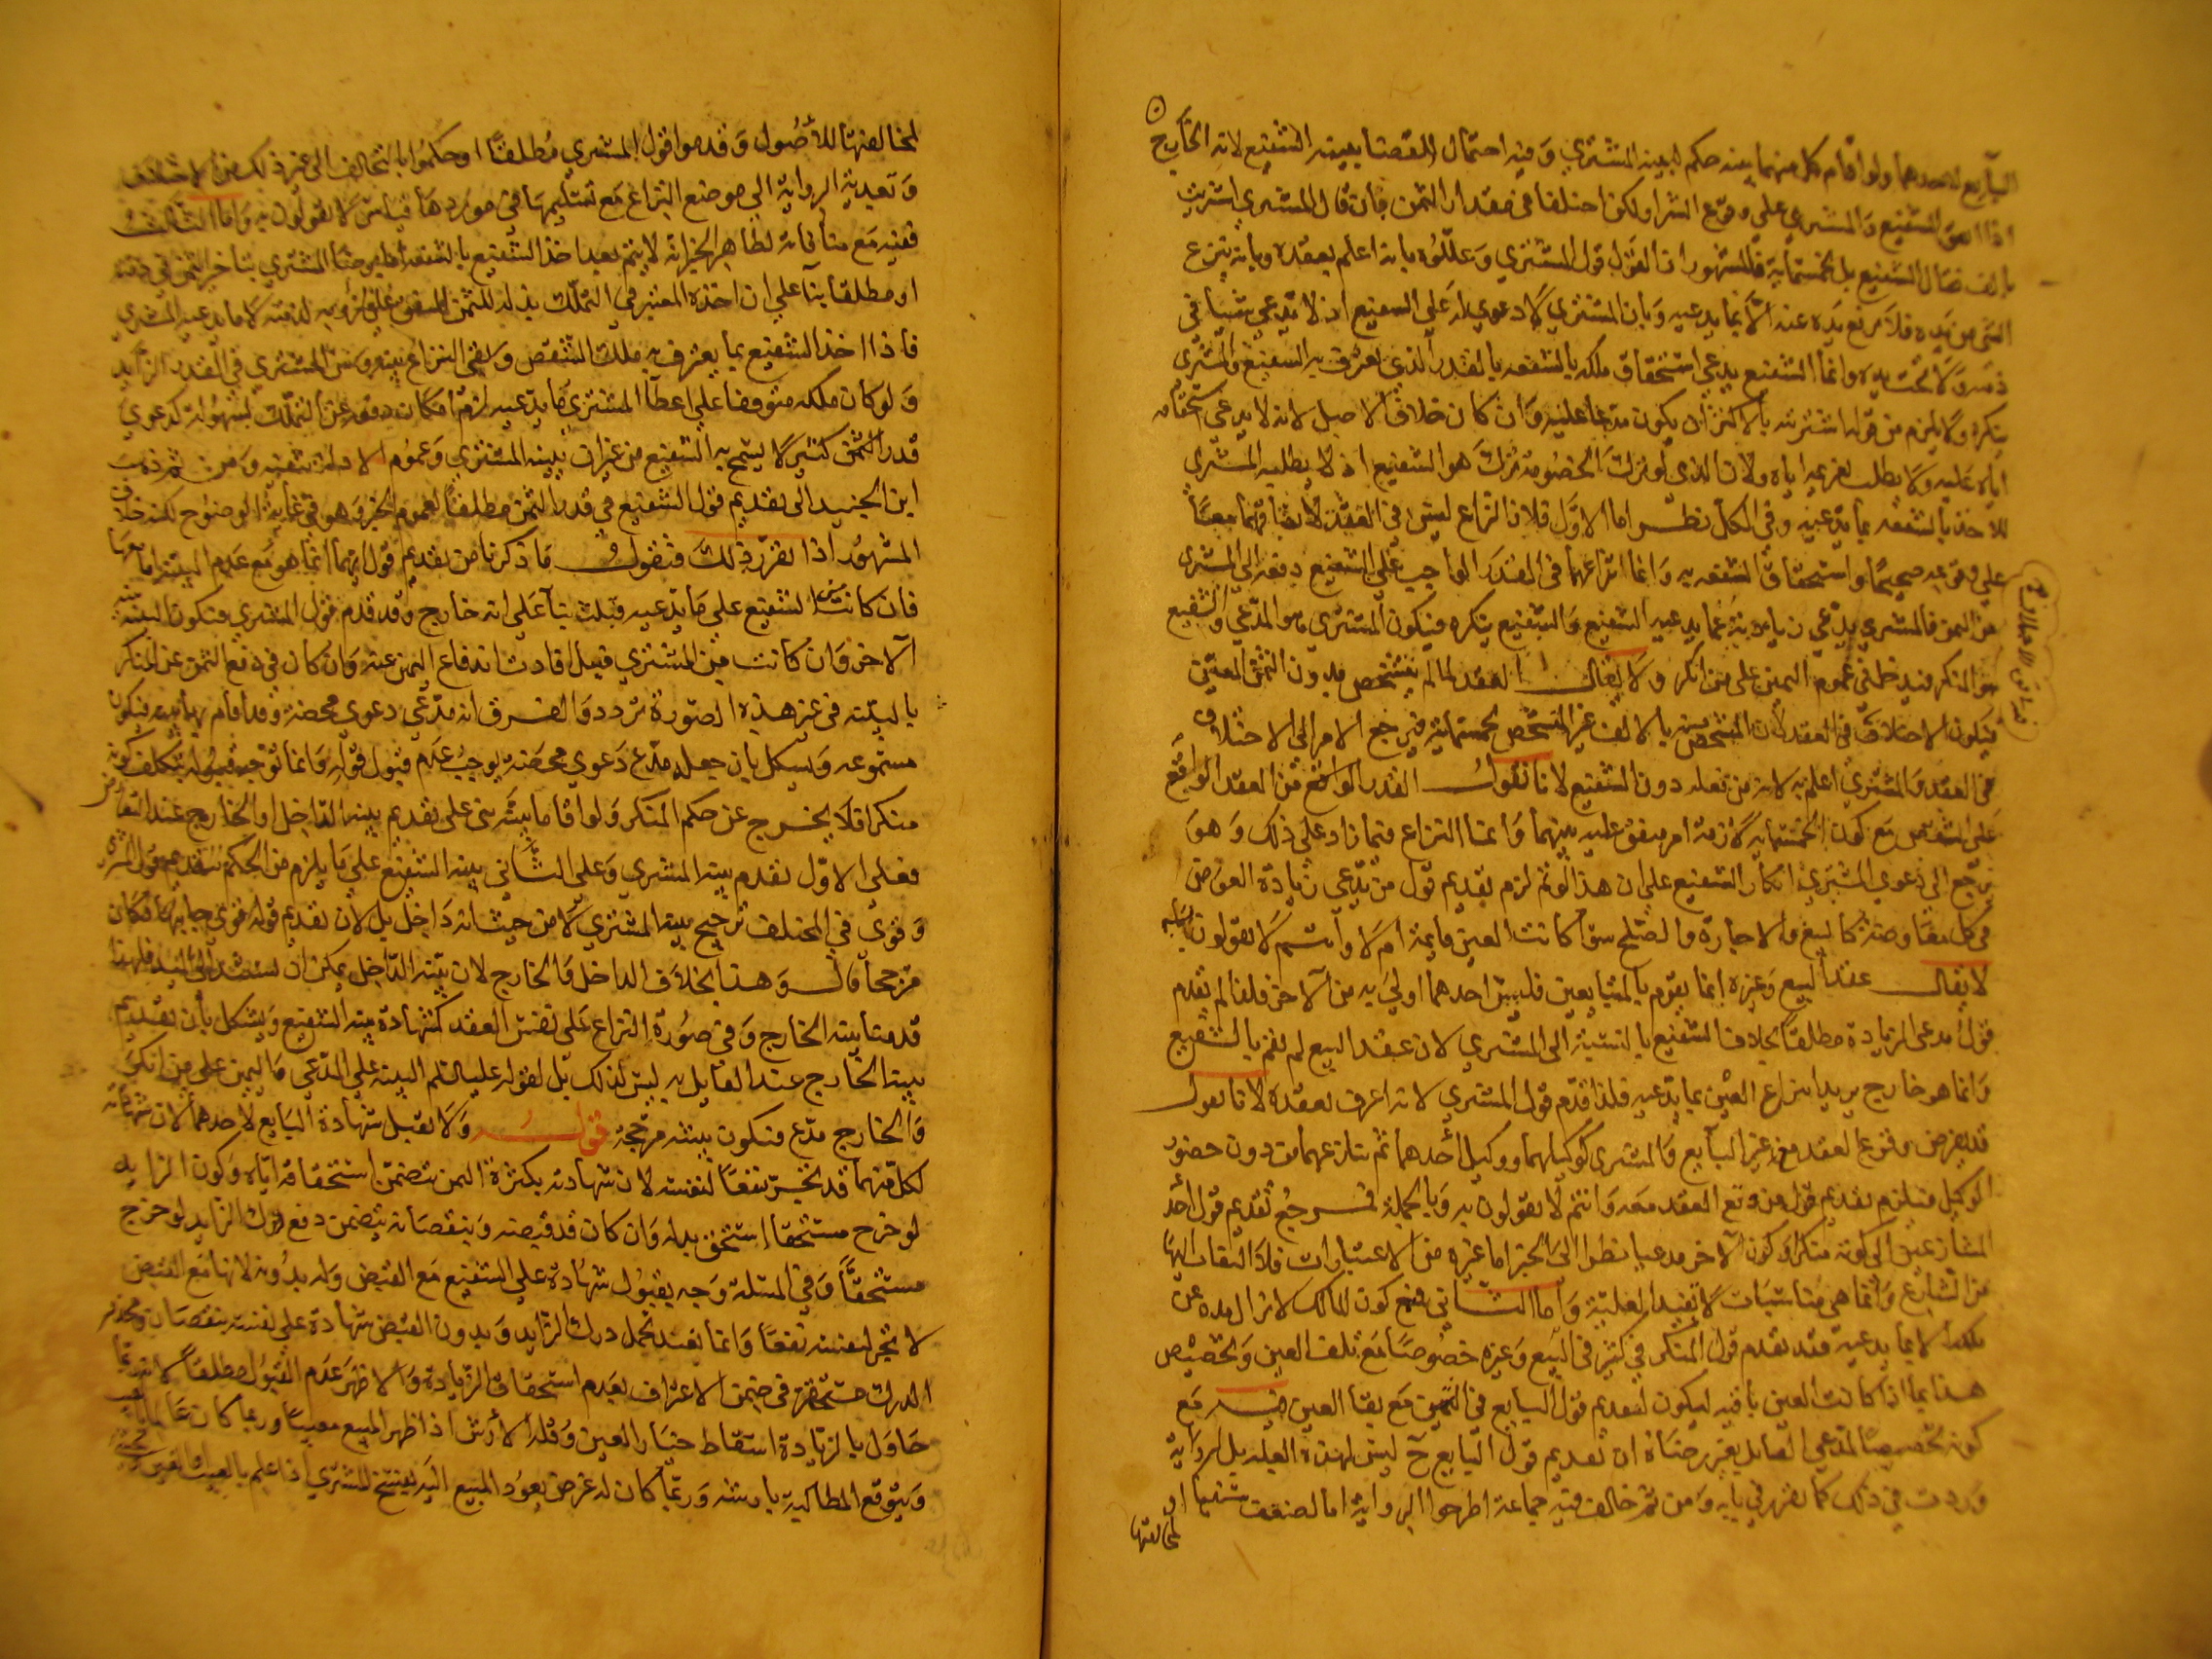 البايع لاحدهما ولو اقام كل منهما بينه حكم لبينه المشتري وفيه احتمال للقضا ببينه الشفيع لانه الخارج
اذا الشفيع والمشتري على وقوع الشرا ولكن اختلفا في مقدار الثمن بان قال المشتري اشتريت
بالف فقال الشفيع بل بخمسمايه فالمشهور ان القول قول المشتري وعللوه بانه اعلم بعقده وبانه ينزع
الشي من يده فلا يرفع يده عنه الا بما يدعيه وبان المشتري لا دعوي له على الشفيع اذ لا يدعي شيا في
ذمته ولا تحت يده وانما الشفيع يدعي استحقاق ملكه بالشفعه بالقدر الذي يعترف به الشفيع والمشتري
ينكره ولا يلزم من قوله اشتريته بالاكثر ان يكون مدعيا عليه وان كان خلاف الاصل لانه لا يدعي استحقاقه
اياه عليه ولا يطلب تغريمه اياه ولان الذي لو ترك الخصومه ترك هو الشفيع اذ لا يطلبه المشتري
للاخذ بالشفعه بما يدعيه وفي الكل نظر اما الاول فلان النزاع ليس في العقد لاتفاقهما معا
على وقوعه صحيحا واستحقاق الشفعه به وانما نزاعهما في القدر الواجب على الشفيع دفعه الى المشتري
من الثمن فالمشتري يدعي زيادته عما يدعيه الشفيع والشفيع ينكره فيكون المشتري هو المدعي والشفيع
هو المنكر فيدخل في عموم اليمين على من انكر ولا يقال العقد لما لم يتشخص بدون الثمن المعين
فيكون الاختلاف في العقد لان المتشخص منه بالالف غير المتشخص بخمسمايه فيرجع الامر الى الاختلاف
في العقد والمشتري اعلم به لانه من فعله دون الشفيع لانا نقول القدر الواقع من العقد الواقع
على الشقص مع كون الخمسمايه لازمه امر متفق عليه بينهما وانما النزاع فيما زاد على ذلك وهو
يرجع الى دعوي المشتري وانكار الشفيع على ان هذا لو تم لزم تقديم قول من يدعي زيادة العوض
في كل معاوضه كالبيع والاجاره والصلح سوا كانت العين قايمه ام لا وانتم لا تقولون به
لا يقال عقد البيع وغيره انما يقوم بالمتبايعين فليس احدهما اولى به من الاخر فلذا لم يقدم
قول مدعي الزيادة مطلقا بخلاف الشفيع بالنسبة الى المشتري لان عقد البيع لم يقم بالشفيع
وانما هو خارج يريد انتزاع العين بما يدعيه فلذا قدم قول المشتري لانه اعرف بعقده لانا نقول
قد يفرض وقوع العقد مع غير البايع والمشتري كوكيلهما ووكيل احدهما ثم تنازعهما من دون حضور
الوكيل فيلزم تقديم قول من وقع العقد معه وانتم لا تقولون به وبالجملة فمرجع تقديم قول احد
المتنازعين الى كونه منكرا وكون الاخر مدعيا نظرا الى الخبر اما غيره من الاعتبارات فلا التفات اليها
من الشارع وانما هي مناسبات لا تفيد العليه واما الثاني فمنع كون المالك لا تزال يده عن
ملكه الا بما يدعيه فقد تقدم قول المنكر في كثير في البيع وغيره خصوصا مع تلف العين وتخصيص
هذا بما اذا كانت العين باقيه ليكون لتقديم قول البايع في الثمن مع بقا العين فيه مع
كونه تخصيصا لمدعي القايل بغير رضاه ان تقديم قول البايع ح ليس لهذه العله بل لروايه
وردت في ذلك كما تقرر في بابه ومن ثم خالف فيه جماعه اطرحوا الروايه اما لضعف سندها او
لمخالفتها
لمخالفتها للاصول وقدموا قول المشتري مطلقا او حكموا بالتحالف الى غير ذلك من الاختلاف
وتعدية الرواية الى موضع النزاع مع تسليمها في موردها قياس لا نقولون به واما الثالث
ففيه مع منافاته لظاهر الخبر انه لا يتم بعد اخذ الشفيع بالشفعه ورضا المشتري بتاخير الثمن في ذمته
او مطلقا بنا على ان اخذه المعتبر في التملك بذله للثمن المتفق على لزومه لذمته لا ما يدعيه المشتري
فاذا اخذ الشفيع بما يعترف به ملك الشقص وبقي النزاع بينه وبين المشتري في القدر الزايد
ولو كان ملكه متوقفا على اعطا المشتري ما يدعيه لزم امكان دفعه عن التملك بسهوله كدعوي
قدر الثمن كثير لا يسمح به الشفيع من غير ان بينه المشتري وعموم الادله تنفيه ومن ثم ذهب
ابن الجنيد الى تقديم قول الشفيع في قدر الثمن مطلقا لعموم الخبر وهو في غاية الوضوح لكنه خلاف
المشهور اذا تقرر ذلك فنقول ما ذكرنا من تقديم قول ايهما انما هو مع عدم البينه اما معها
فان كانت للشفيع على ما يدعيه قبلت بنا على انه خارج وقد قدم قول المشتري فتكون البينه بينه
الاخر وان كانت من المشتري قيل افادت اندفاع اليمين عنه وان كان في دفع الثمن عن المنكر
بالبينه في غير هذه الصورة تردد والفرق انه مدعي دعوي محضة وقد اقام بها بينه فتكون
مسموعه ويشكل بان جعله مدع دعوي محضة يوجب عدم قبول قوله وانما توجه قبوله بتكلف كونه
منكرا فلا يخرج عن حكم المنكر ولو اقاما بينه بني على تقديم بينه الداخل او الخارج عند التعارض
فعلى الاول تقدم بينه المشتري وعلى الثاني بينه الشفيع على ما يلزم من الحكم بتقديم قول المشتري
وقوى في المختلف ترجيح بينه المشتري لا من حيث انه داخل بل لان تقديم قوله قوي جانبه فكان
مرجحا قال وهذا بخلاف الداخل والخارج لان بينه الداخل يمكن ان تستند الى اليد فلهذا
قدمنا بينه الخارج وفي صورة النزاع على نفس العقد كشهادة بينه الشفيع ويشكل بان تقديم
بينه الخارج عند القايل به ليس لذلك بل لقوله عليه السلم البينه على المدعي واليمين على من انكر
والخارج مدع فتكون بينته مرجحه قوله ولا تقبل شهادة البايع لاحدهما لان شهادته
لكل منهما قد تجر نفعا لنفسه لان شهادته بكثرة الثمن تتضمن استحقاقه اياه وكون الزايد
لو خرج مستحقا استحق بدله وان كان قد قبضه وبنقصانه يتضمن دفع درك الزايد لو خرج
مستحقا وفي المسئلة وجه بقبول شهادة على الشفيع مع القبض وله بدونه لانها مع القبض
لا تجر لنفسه نفعا وانما تفيد تحمل درك الزايد وبدون القبض شهادة على نفسه بنقصان
الدرك مستحقرة في ضمن الاعتراف بعدم استحقاق الزيادة والاظهر عدم القبول مطلقا لانه ربما
حاول بالزيادة اسقاط خيار العين وقدر الارش اذا ظهر المبيع معيبا وربما كان عالما بالعيب
ويتوقع المطالبة بارشه وربما كان له غرض بعود المبيع اليه بفسخ المشتري اذا علم بالعيب